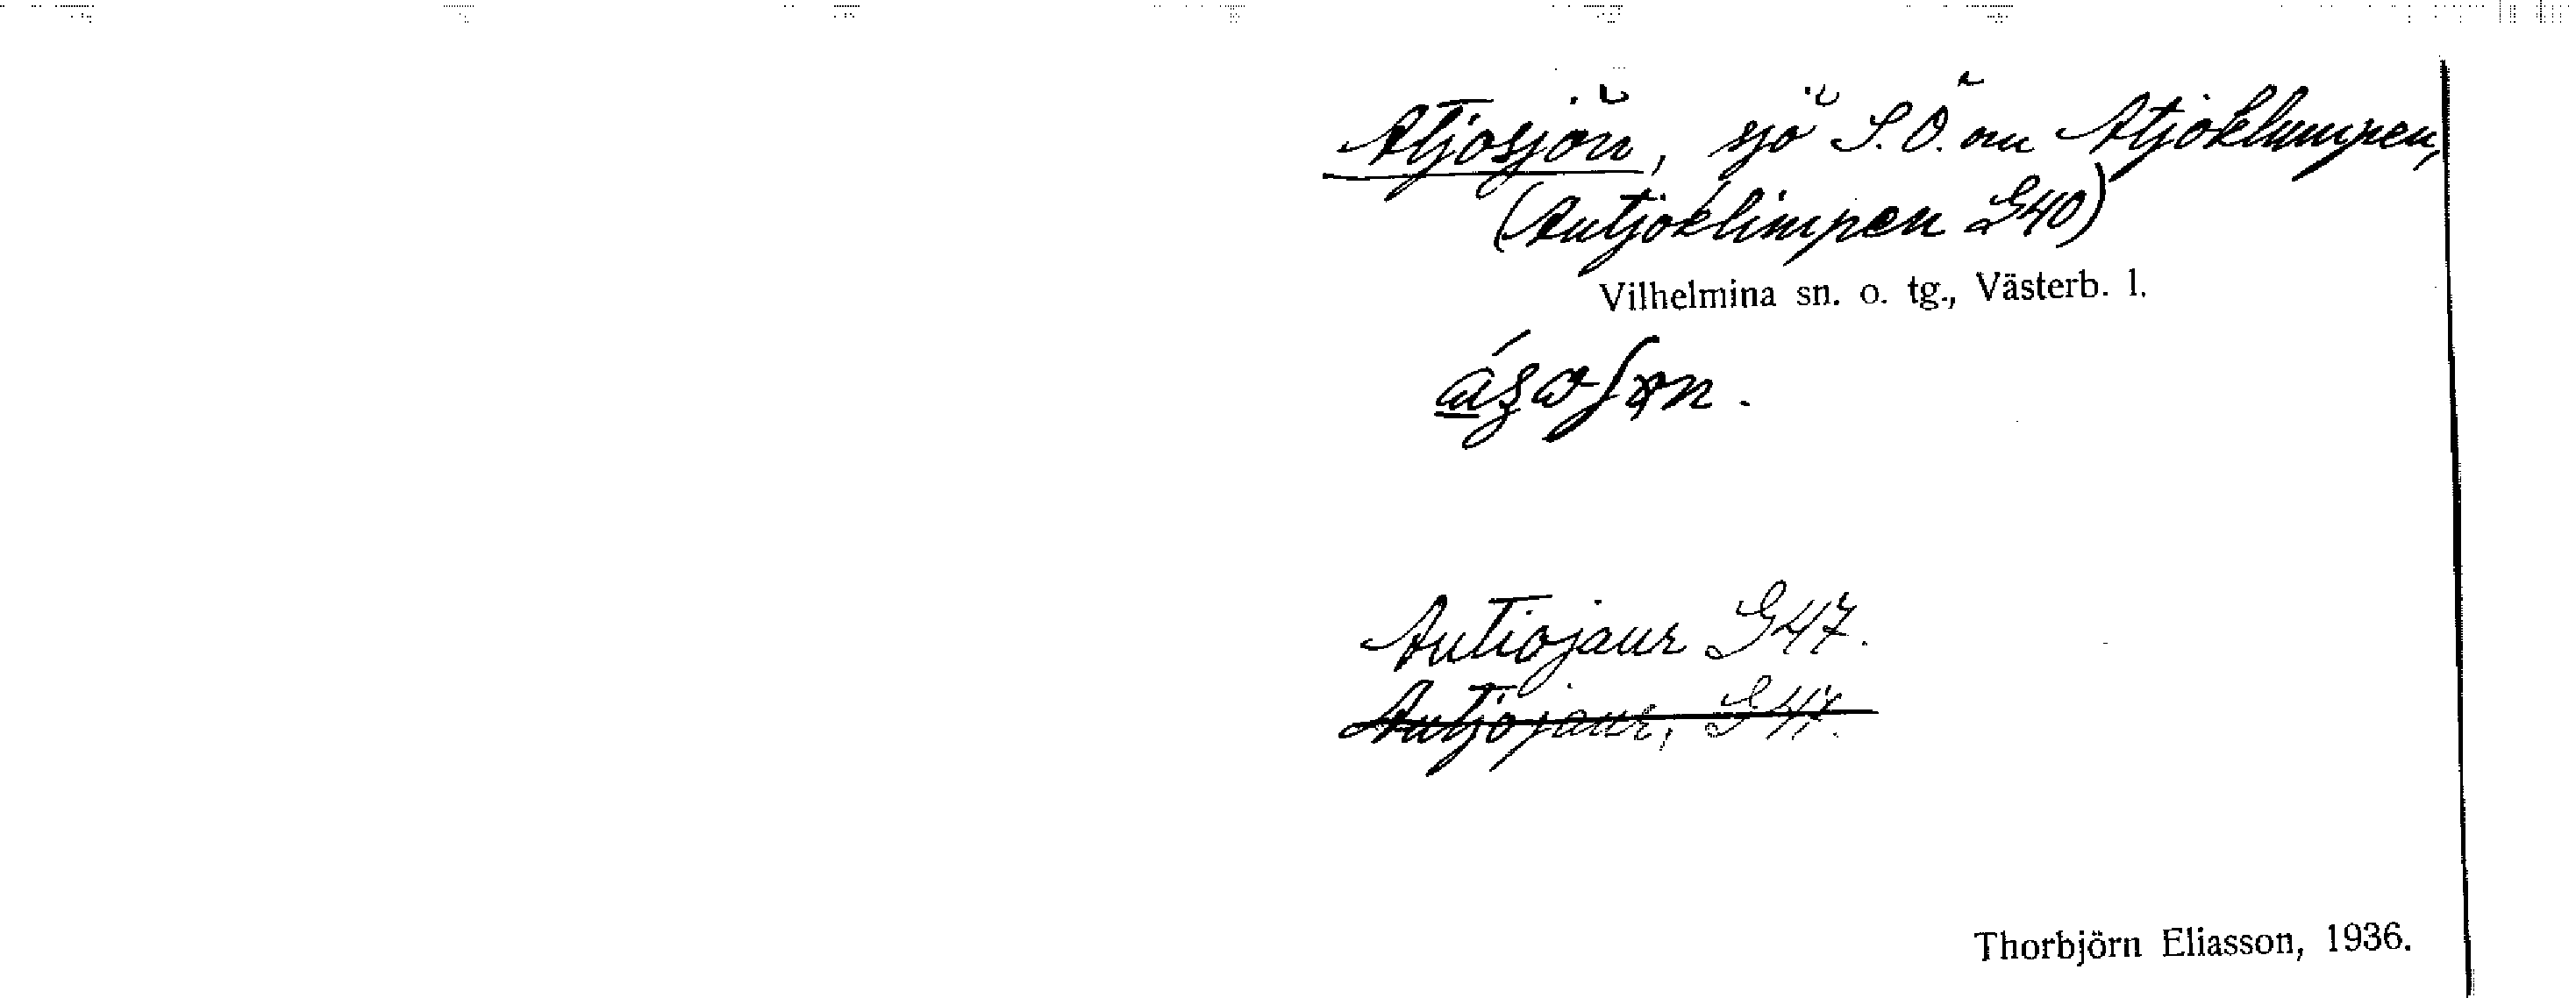 Atjosjön, sjö S.Ö. om Atjoklumpen,
(Autjoklimpen G40)
Vilhelmina sn. o. tg., Västerb. l.
Autiojaur G47.
Autjojaur, G47.
Thorbjörn Eliasson, 1936.